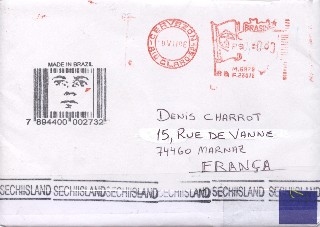 CERVREON
RIO CLARO
BRASIL
MADE IN BRAZIL
7 894400 002732
DENIS CHARROT
15, RUE DE VANNE
74460 MARNAZ
FRANÇA
SECHIISLAND SECHIISLAND SECHIISLAND SECHIISLAND SECHIISLAND